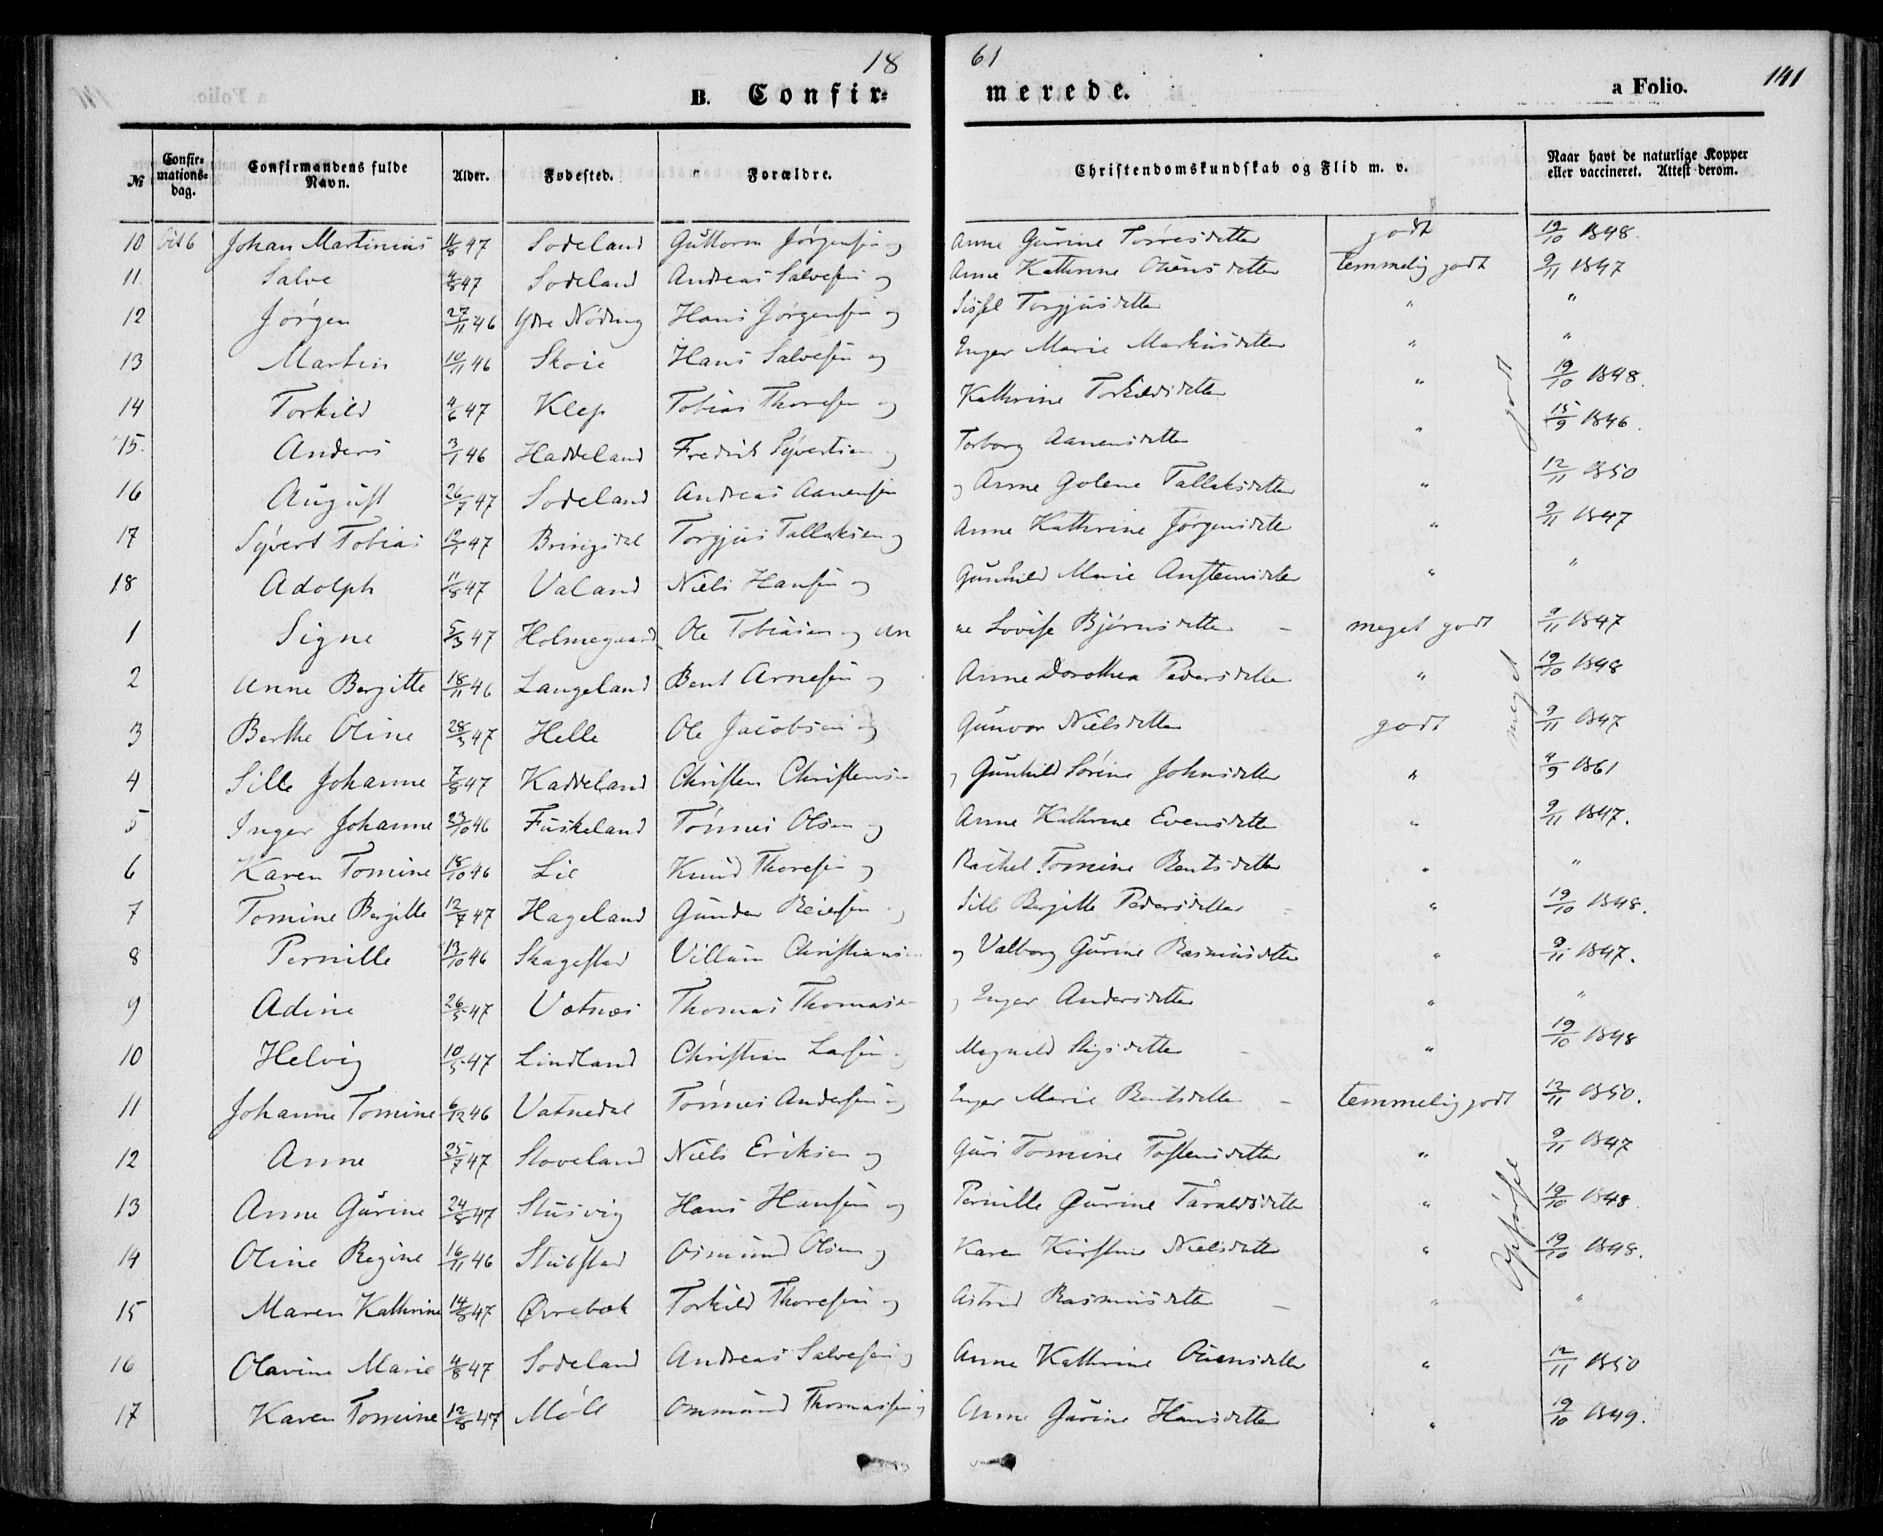 18 61
B. Confir= merede. a Folio. 141
№ Confir=mations=dag. Confirmandens fulde Navn. Alder. Fødested. Forældre. Christendomskundskab og Flid m. v. Naar havt de naturlige Kopper eller vaccineret. Attest derom.
10 Oct 6 Johan Martinius 11/8 47 Sodeland Guttorm Jørgensen og Anne Gurine Torresdatter godt 19/10 1848.
11. Salve 4/8 47 Sodeland Andreas Salvesen og Anne Kathrine Oiensdatter temmelig godt 9/11 1847
12 Jørgen 27/11 46 Ydre Nøding Hans Jørgensen og Sissel Torgjusdatter " "
13 Martin 10/11 46 Skoie Hans Salvesen og Inger Marie Markusdatter " "
14 Torkild 4/6 47 Klep Tobias Thoresen og Kathrine Torkildsdatter " 19/10 1848.
15. Anders 3/1 46 Haddeland Fredrik Syvertsen og Torborg Aanensdatter " 15/9 1846.
16 August 26/7 47 Sodeland Andreas Aanensen og Anne Golene Tallaksdatter " 12/11 1850
17 Syvert Tobias 12/1 47 Bringsdal Torgjus Tallaksen og Anne Kathrine Jørgensdatter " 9/11 1847
18 Adolph 11/8 47 Valand Niels Hansen og Gunhild Marie Anstensdatter " "
1 Signe 5/3 47 Holmegaard Ole Tobiasen og Anne Lovise Bjørnsdatter - meget godt 9/11 1847
2 Anne Bergitte 18/11 46 Langeland Bent Arnesen og Anne Dorothea Pedersdatter " 19/10 1848
3 Berthe Oline 28/3 47 Helle Ole Jacobsen og Gunvor Nielsdatter godt 9/11 1847
4 Sille Johanne 7/8 47 Kaddeland Christen Christensen og Gunhild Sørine Johnsdatter " 4/9 1861
5 Inger Johanne 23/10 46 Fuskeland Tønnes Olsen og Anne Kathrine Evensdatter " 9/11 1847.
6 Karen Tomine 18/10 46 Lie Knud Thoresen og Rachel Tomine Bentsdatter " "
7 Tomine Bergitte 12/7 47 Hageland Gunder Reiersen og Sille Bergitte Pedersdatter " 19/10 1848.
8 Pernille 13/10 46 Skagestad Villum Christiansen og Valborg Gurine Rasmusdatter " 9/11 1847.
9 Adine 26/5 47 Vatnes Thomas Thomasen og Inger Andersdatter " "
10 Helvig 10/5 47 Lindland Christian Larsen og Magnild Stigsdatter - " 19/10 1848
11 Johanne Tomine 6/12 46 Vatnedal Tønnes Andersen og Inger Marie Bentsdatter - temmelig godt 12/11 1850.
12 Anne 25/7 47 Stoveland Niels Eriksen og Guri Tomine Tostensdatter " 9/11 1847
13 Anne Gurine 24/8 47 Stusvig Hans Hansen og Pernille Gurine Taraldsdatter " 19/10 1848
14 Oline Regine 16/11 46 Stubstad Osmund Olsen og Karen Kirstine Nielsdatter " 19/10 1848.
15 Maren Kathrine 14/8 47 Øvrebøk Torkild Thoresen og Astrid Rasmusdatter - " "
16 Olavine Marie 4/8 47 Sodeland Andreas Salvesen og Anne Kathrine Oiensdatter " 12/11 1850
17 Karen Tomine 12/8 47 Møll Ommund Thomassen og Anne Gurine Hansdatter " 19/10 1849.
Opførsel meget godt